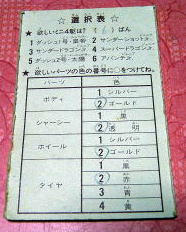 ☆ 選択表 ☆
★ 欲しいミニ4駆は? (6) ばん
1 ダッシュ1号・皇帝 2 サンダーショットJr.
3 サンダードラゴンJr. 4 スーパードラゴンJr.
5 ダッシュ2号・太陽 6 アバンテJr.
★ 欲しいパーツの色の番号に○をつけてね。
パーツ 色
ボディ 1 シルバー
2 ゴールド
シャーシー 1 黒
2 透明
ホイール 1 シルバー
2 ゴールド
タイヤ 1 黒
2 赤
3 青
4 黄